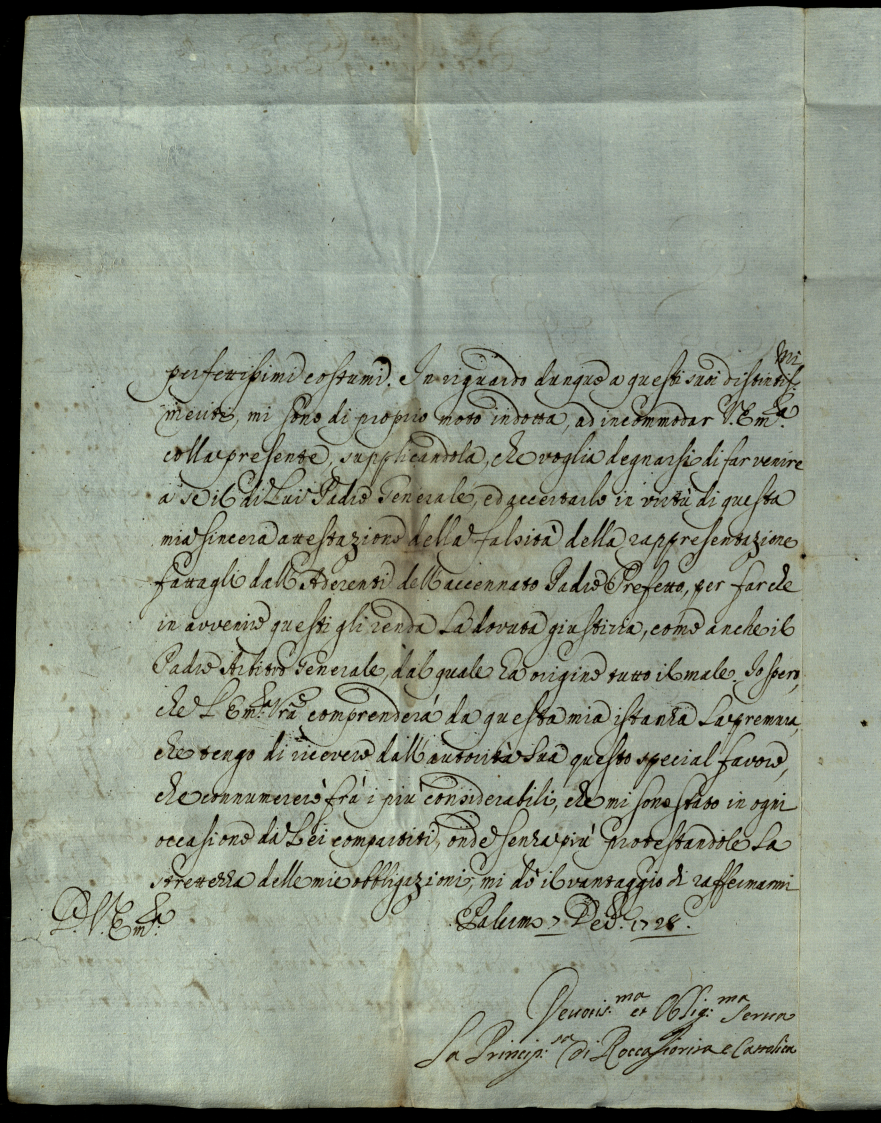 perfettissimi costumi. In riguardo dunque a questi suoi distintiss:mi
meriti, mi sono di proprio moto indotta, ad incommodar V. Em:za
colla presente, supplicandola, che voglia degnarsi di far venire
a se il di Lui Padre Generale, ed accertarlo in virtù di questa
mia sincera attestazione della falsità della rappresentazione
fattagli dall'Aderenti dell'accennato Padre Prefetto, per far che
in avvenire questi gli renda La dovuta giustizia, come anche il
Padre Arbitro Generale, dal quale ha origine tutto il male. Io spero,
che L'Em:za Vra comprenderà da questa mia istanza La premura,
che tengo di ricevere dall'autorità Sua questo special favore,
che connumererò frà i più considerabili, che mi sono stato in ogni
occasione da Lei compartiti, onde senza più protestandole La
strettezza delle mie obbligazioni, mi dò il vantaggio di raffermarmi
D. V. Em:za
Palermo 7 Dec: 1728.
Devotis:ma et Oblig:ma Serva
La Princip:sa di Roccafiorita e Cattolica